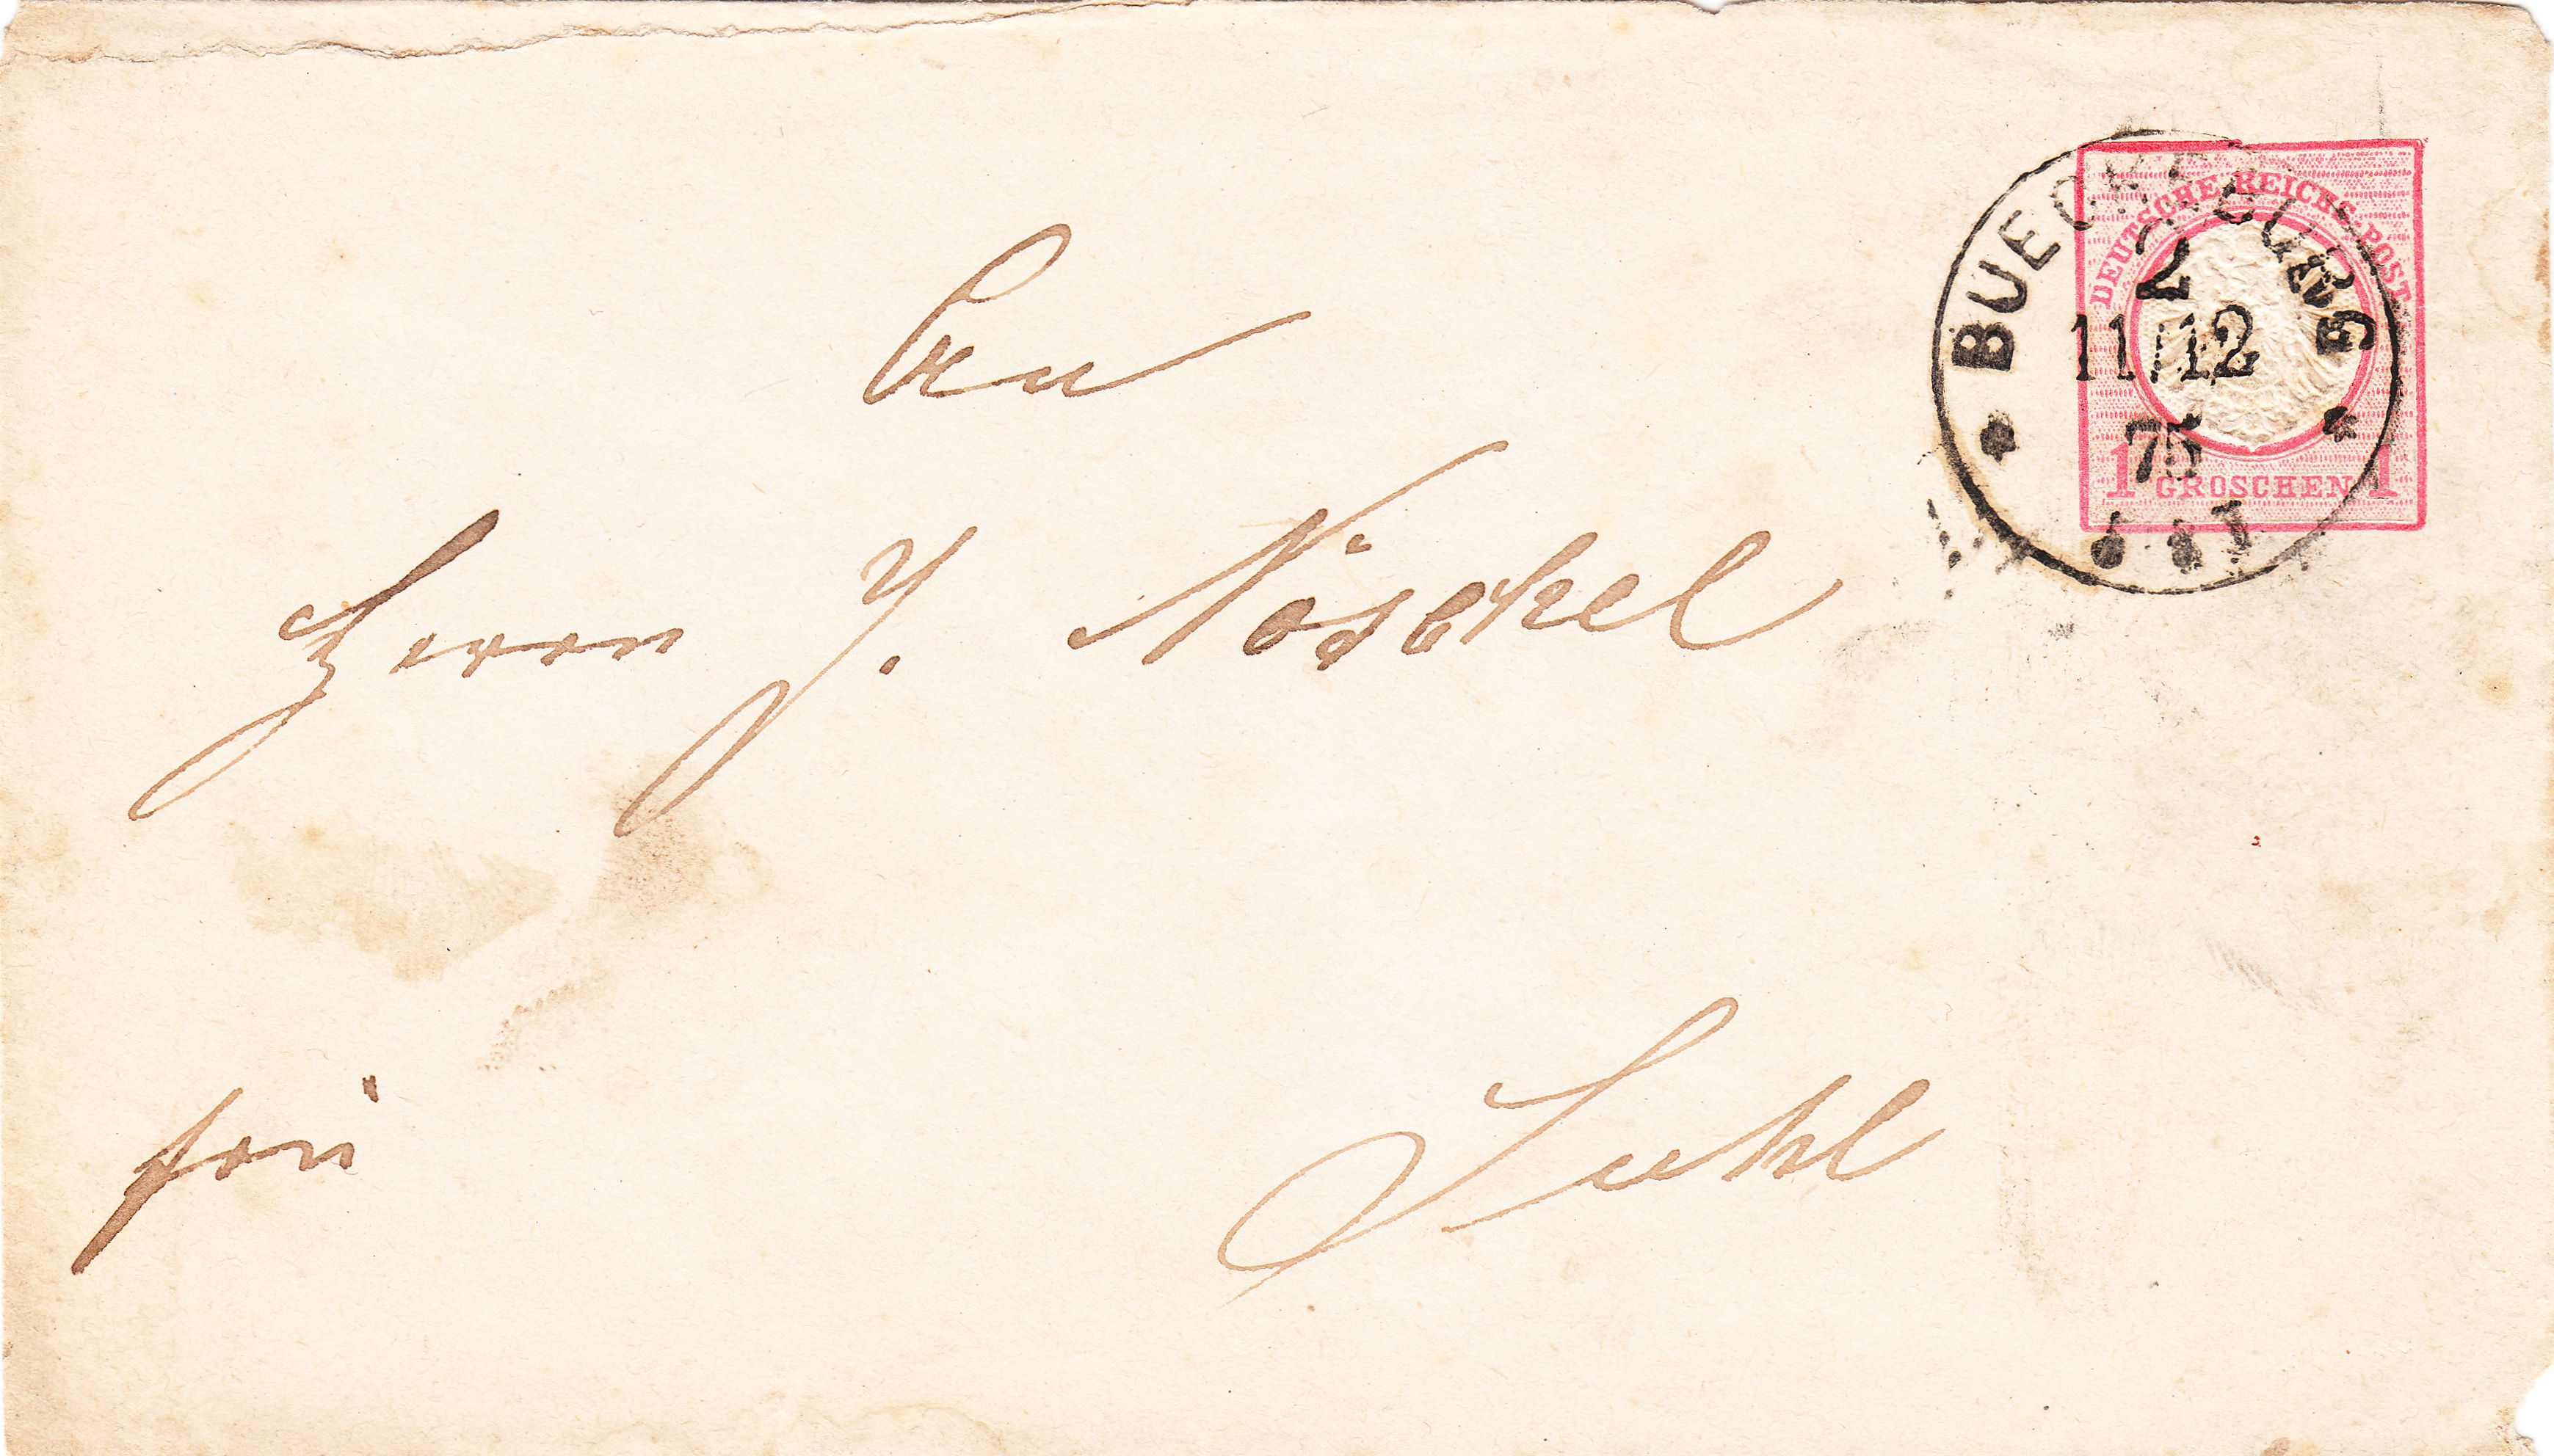 DEUTSCHE REICHS-POST
1 GROSCHEN 1
BUECKEBURG
2
11/12
75
An
Herrn J. Nöschel
frei
Suhl